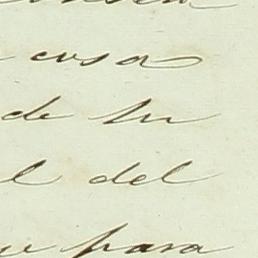 cosa
de su
del
para